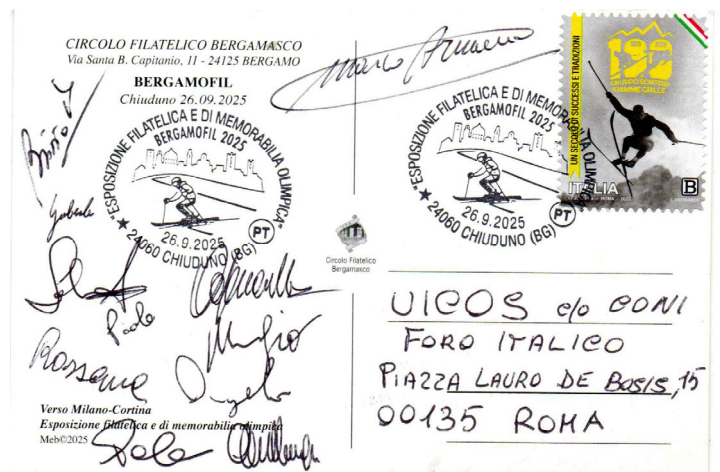 CIRCOLO FILATELICO BERGAMASCO
Via Santa B. Capitanio, 11 - 24125 BERGAMO
BERGAMOFIL
Chiuduno 26.09.2025
"ESPOSIZIONE FILATELICA E DI MEMORABILIA OLIMPICA"
BERGAMOFIL 2025
26.9.2025
PT
24060 CHIUDUNO (BG)
Gabriele
Paola
Rossana
Angelo
Verso Milano-Cortina
Esposizione filatelica e di memorabilia olimpica
Meb©2025
Circolo Filatelico
Bergamasco
Marco
"ESPOSIZIONE FILATELICA E DI MEMORABILIA OLIMPICA"
BERGAMOFIL 2025
26.9.2025
PT
24060 CHIUDUNO (BG)
UN SECOLO DI SUCCESSI E TRADIZIONI
GRUPPO SCIATORI
FIAMME GIALLE
ITALIA
B
UICOS c/o CONI
FORO ITALICO
PIAZZA LAURO DE BOSIS, 15
00135 ROMA